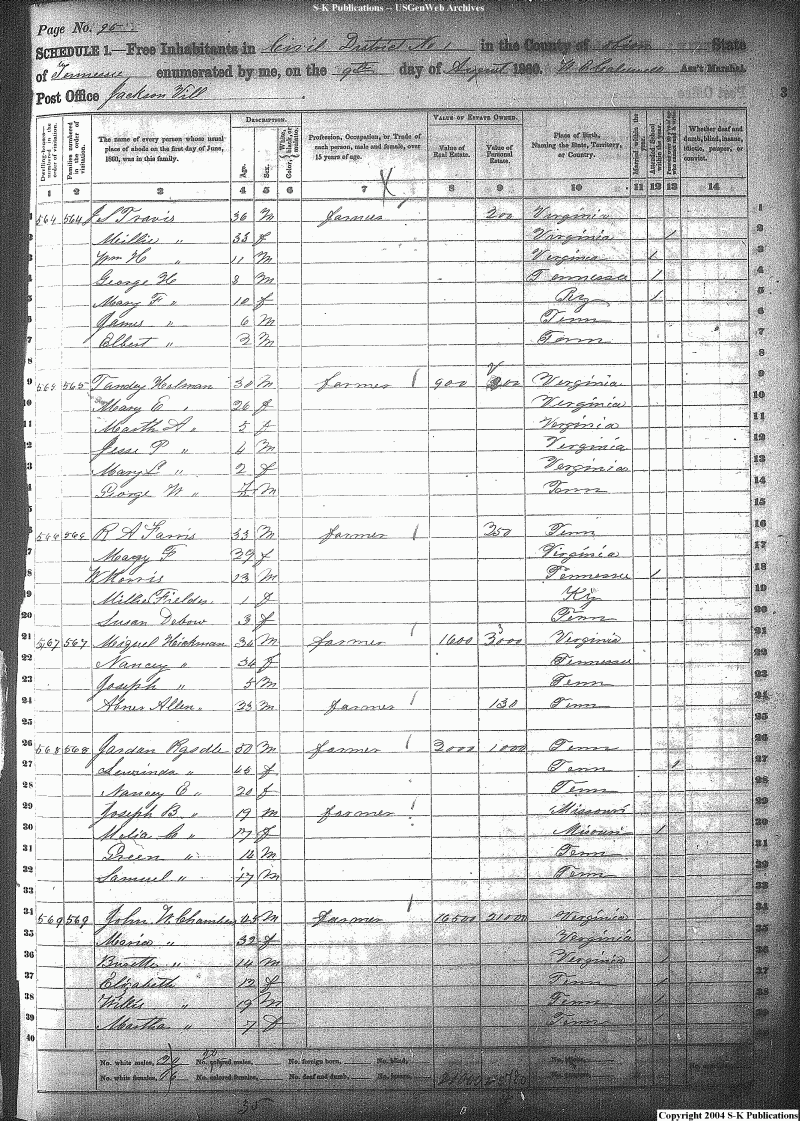 S-K Publications -- USGenWeb Archives
Page No. 95
SCHEDULE 1.—Free Inhabitants in Civil District No 1 in the County of Obion State
of Tennessee enumerated by me, on the 9th day of August 1860. Ass't Marshal.
Post Office Jackson Vill
3
Dwelling-houses numbered in the order of visitation.
Families numbered in the order of visitation.
The name of every person whose usual place of abode on the first day of June, 1860, was in this family.
DESCRIPTION.
Age.
Sex.
Color, White, black, or mulatto.
Profession, Occupation, or Trade of each person, male and female, over 15 years of age.
VALUE OF ESTATE OWNED.
Value of Real Estate.
Value of Personal Estate.
Place of Birth, Naming the State, Territory, or Country.
Married within the year.
Attended School within the year.
Whether deaf and dumb, blind, insane, idiotic, pauper, or convict.
1 2 3 4 5 6 7 8 9 10 11 12 13 14
1 564 564 J S Travis 36 M farmer 200 Virginia 1
2 Millie " 33 f Virginia 1 2
3 Wm H " 11 M Verginia 1 3
4 George H " 8 M Tennessee 1 4
5 Mary F " 10 f Ky 1 5
6 James " 6 M Tenn 6
7 Elbert " 2 M Tenn 7
8 8
9 565 565 Tandy Holman 30 M farmer 1 900 200 Verginia 9
10 Mary E " 26 f Verginia 10
11 Marth A " 5 f Verginia 11
12 Jesse P " 4 M Verginia 12
13 Mary L " 2 f Verginia 13
14 George W " M Tenn 14
15 15
16 566 566 R A Farris 33 M farmer 1 250 Tenn 16
17 Mary F 39 f Virginia 17
18 W Morris 13 M Tennessee 1 18
19 Millie Fielder 1 f Ky 19
20 Susan Debow 3 f Tenn 20
21 567 567 Hickman 36 M farmer 1 1600 3000 Verginia 21
22 Nancey " 36 f Tennessee 22
23 Joseph " 5 M Tenn 23
24 Abner Allen 35 M farmer 1 130 Tenn 24
25 25
26 568 568 Jardan Rgsdle 50 M farmer 1 3000 1000 Tenn 26
27 " 45 f Tenn 1 27
28 Nancey E " 20 f Tenn 28
29 Joseph B " 19 m farmer 1 Missouri 29
30 Melia C " 17 f Misouri 1 30
31 Green " 16 M Tenn 31
32 Samuel " 17 M Tenn 32
33 33
34 569 569 John W Chamber 45 M farmer 1 16500 21000 Verginia 34
35 Maria " 32 f Verginia 35
36 " 14 m Verginia 1 36
37 Elizabeth 12 f Tenn 1 37
38 Willis " 19 M Tenn 1 38
39 Martha " 7 f Tenn 1 39
40
No. white males, 20 No. colored males, No. foreign born, No. blind,
No. white females, 16 No. colored females, No. deaf and dumb, No. insane,
35
Copyright 2004 S-K Publications